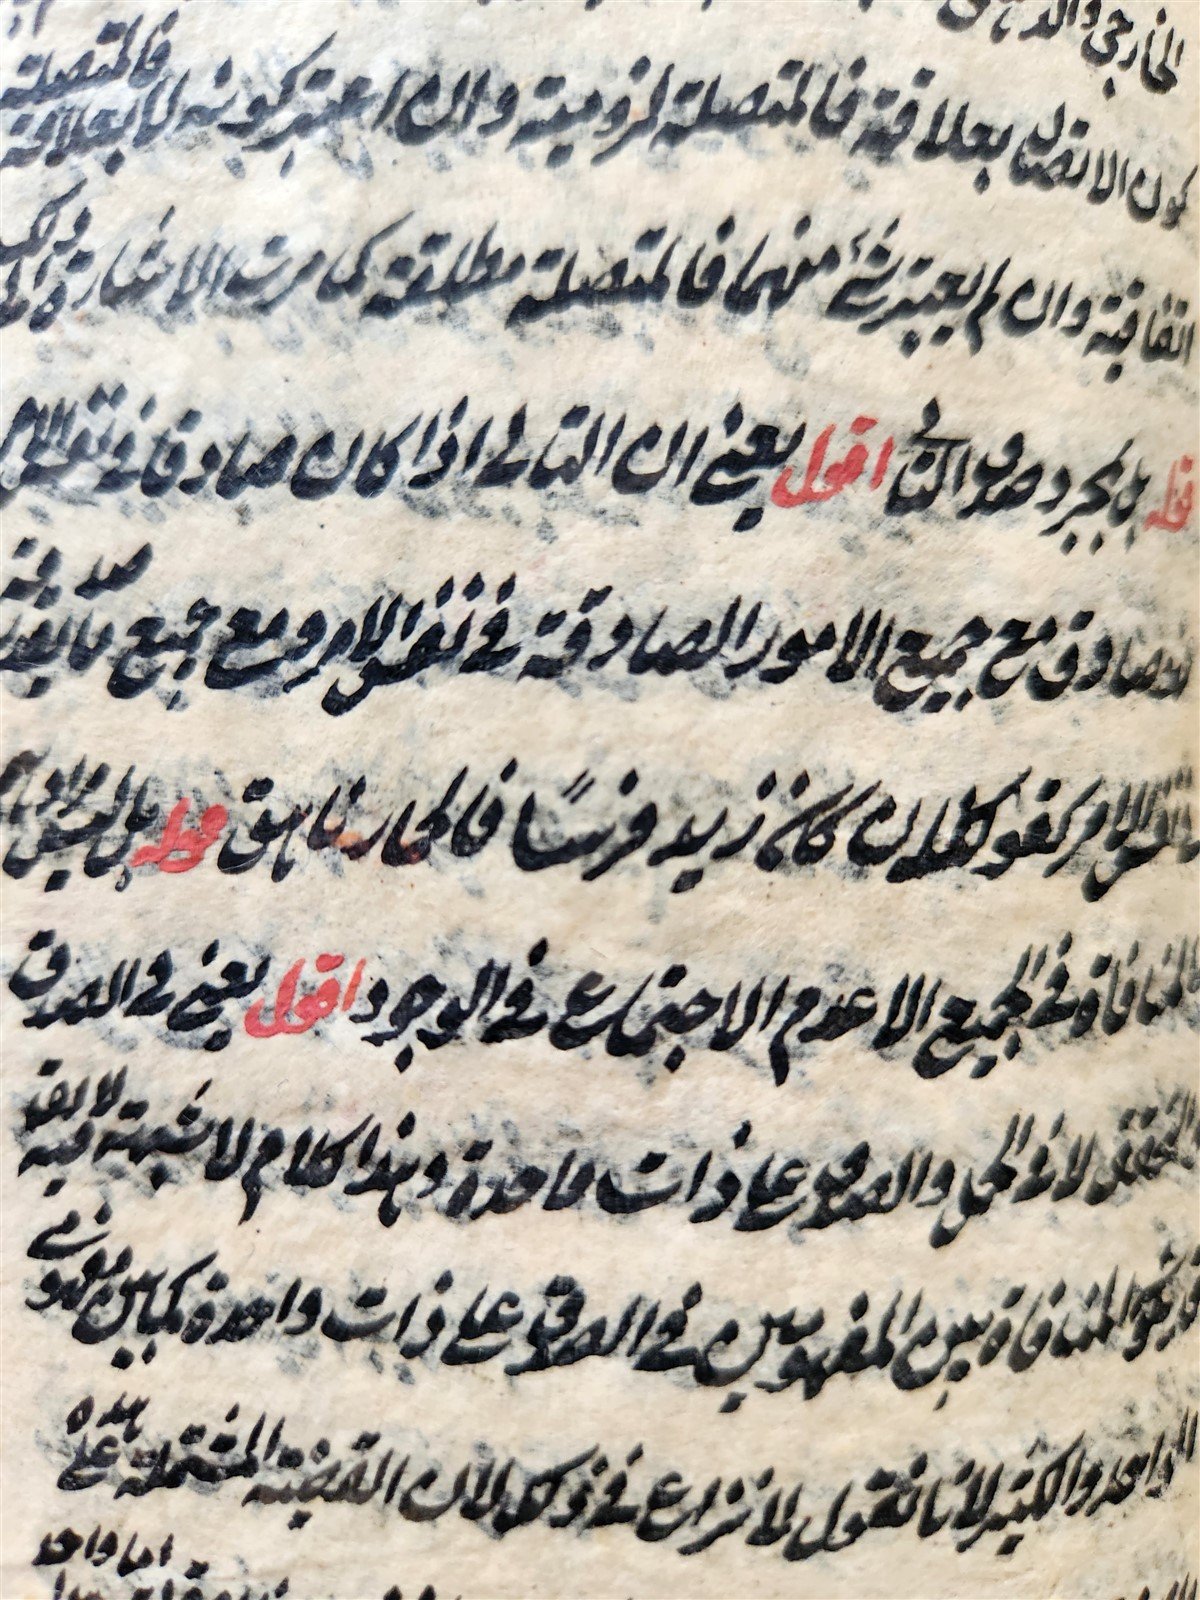 الخارجي والذهني
كون الاتصال بعلاقة فالمتصلة لزومية وان اعتبر كونه لا بعلاقة فالمتصلة
اتفاقية وان لم يعتبر شئ منهما فالمتصلة مطلقة كما مرت الاشارة الى ذلك
قوله بل بمجرد صدق التالي اقول يعني ان التالي اذا كان صادقا في نفس الامر
صادق مع جميع الامور الصادقة في نفس الامر ومع جميع ما صدقه
نفس الامر كقولك لان كان زيد فرسًا فالحمار ناهق قوله بل ليس المراد
بالمنافاة في الجميع الا عدم الاجتماع في الوجود اقول يعني في الصدق
التحقق لا في الحمل والصدق على ذات واحدة وهذا كلام لا شبهة فيه لا يق
المنافاة بين المفهومين في الصدق على ذات واحدة كما بين مفهومي
الواحد والكثير لانا نقول لا نزاع في ذلك لان القضية المشتملة على هذه
اما واحد